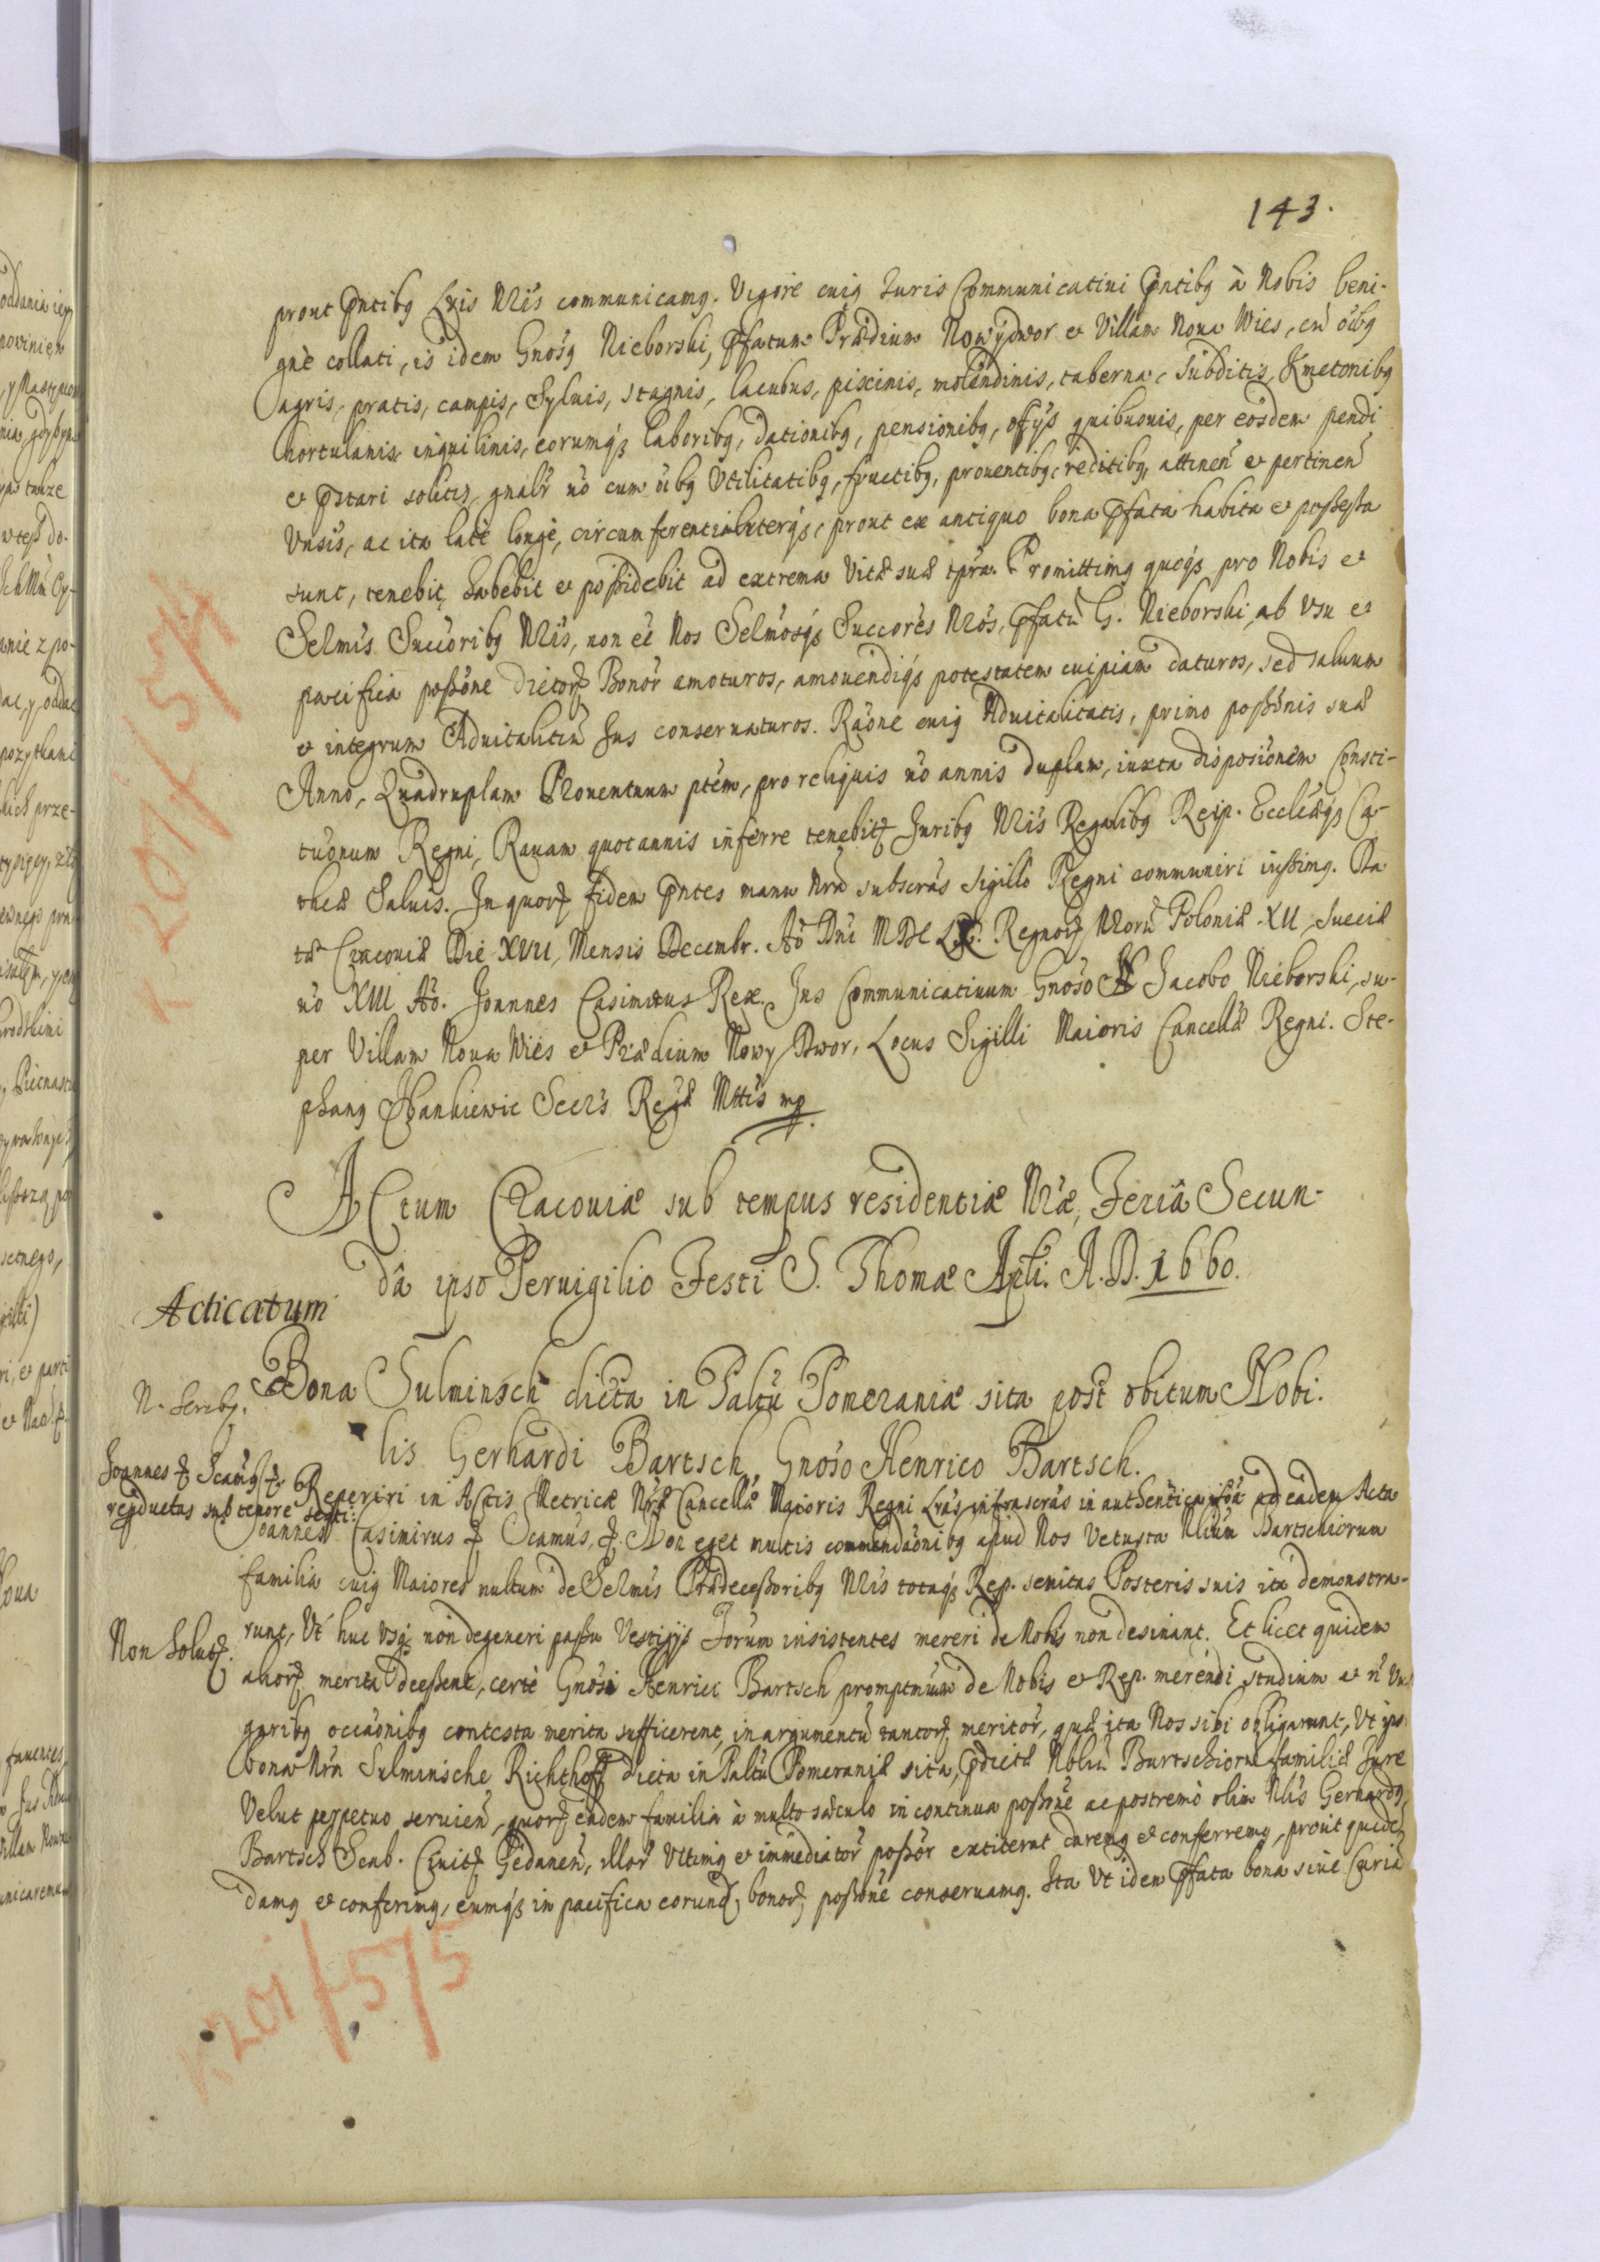 143.
prout Pntibq Lris Nris communicamq. Vigore cuiq Juris Communicatiui Pntibq à Nobis beni-
gnè collati, is idem Gnosq Nieborski, Pfatum Prædium Nowydwor et Villam Noua Wies, cũ oibq
agris, pratis, campis, Syluis, stagnis, lacubus, piscinis, molendinis, taberna, subditis, Kmetonibq
hortulanis inquilinis, eorumqз laboribq, dationibq, pensionibq, offijs quibusuis, per eosdem pendi
et Pstari solitis, gnalr uò cum oibq Vtilitatibq, fructibq, prouentibq, reditibq, attineñ et pertineñ
Vnsis, ac ita latè longè, circumferentialiterqз, prout ex antiquo bona Pfata habita et possessa
sunt, tenebit, habebit et possidebit ad extrema Vitæ suæ tpra. Promittimq queqз pro Nobis et
Selmis Succoribq Nris, non eè Nos Selmosqз Succores Nros, Pfatũ G. Nieborski, ab Vsu et
pacifica possone dictorz Bonor amoturos, amouendiqз potestatem cuipiam daturos, sed saluum
et integrum Aduitalitiũ Jus conseruaturos. Raone cuiq Aduitalitatis, primo possonis suæ
Anno, Quadruplam Prouentuum ptem, pro reliquis uò annis duplam, iuxta disposionem Consti-
tuonum Regni, Rauam quotannis inferre tenebitz Juribq Nris Regalibq Reip. Ecclæqз Ca-
thcæ Saluis. In quorz fidem Pntes manu Nra subscras sigillo Regni communiri iussimq. Da
tæ Cracouiæ Die XVII, Mensis Decembr. Aõ Dni MDCLX. Regnorz Nrorũ Poloniæ XII, Sueciæ
uò XIII Aõ. Joannes Casimirus Rex. Jus Communicatiuum Gnoso Jacobo Nieborski, su-
per Villam Noua Wies et Prædium Nowy Dwor, Locus Sigilli Maioris Cancellæ Regni. Ste-
phanq Hankiewic Secrs Regiæ Mttis mp.
ACtum Cracouiæ sub tempus residentiæ Nræ, Feriâ Secun-
dâ ipso Peruigilio Festi S. Thomæ Apli. A. D. 1660.
Acticatum
Bona Sulminsch dicta in Paltũ Pomeraniæ sita post obitum Nobi.
lis Gerhardi Bartsch, Gnoso Henrico Bartsch.
N. Scribq.
Joannes z Scamq z
repductas sub tenore seqti:
Reperiri in Actis Metricæ Nræ Cancellæ Maioris Regni Lras infrascras in authentica ad eadem Acta
Joannes Casimirus z Scamus, z. Non eget multis commendaonibq apud Nos Vetusta Nlium Bartschiorum
familia cuiq Maiores multum de Selmis Prædecessoribq Nris totaqз Rep. meritas Posteris suis ita demonstra-
runt, Vt huc Vsqз non degeneri passu Vestigijs Jorum insistentes mereri de Nobis non desinant. Et licet quidem
Non Solutz.
aliorz merita deessent, certè Gnosi Henrici Bartsch promptuum de Nobis et Rep. merendi studium et ñ Vul
garibq occaonibq contesta merita sufficerent, in argumentũ tantorz meritor, quæ ita Nos sibi obligarunt, Vt ips
bona Nra Sulminsche Richthoff dicta in Paltu Pomeraniæ sita, Pdictæ Nbliũ Bartschiorũ familiæ Jure
Velut perpetuo seruieñ, quorz eadem familia à multo sæculo in continua possone ac postremò olim Nlis Gerhardq
Bartsch Scab. Ciuitz Gedaneñ, illor Vltimq et immediator possor extiterat daremq et conferremq, prout quidem
damq et conferimq, eumqз in pacifica eorund, bonorz possone conseruamq. Ita Vt idem Pfata bona siue Curiã
K 201/574
K 201/575